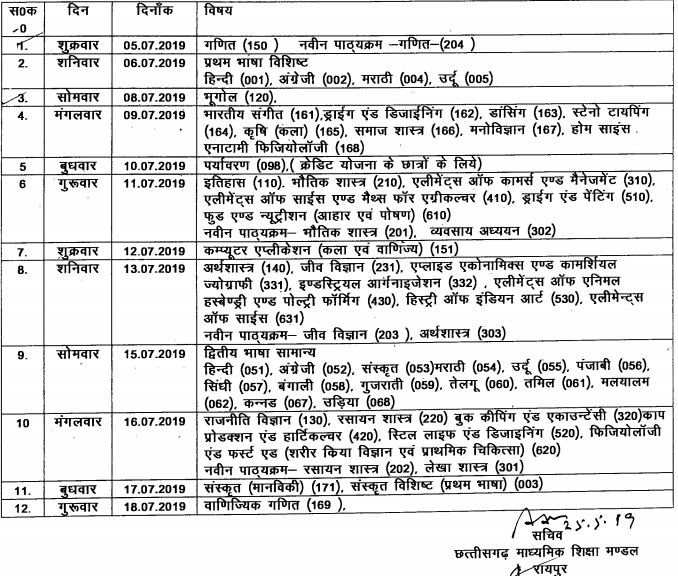 स0क दिन दिनाँक विषय
0
1. शुक्रवार 05.07.2019 गणित (150 ) नवीन पाठ्यक्रम –गणित–(204 )
2. शनिवार 06.07.2019 प्रथम भाषा विशिष्ट
हिन्दी (001), अंग्रेजी (002), मराठी (004), उर्दू (005)
3. सोमवार 08.07.2019 भूगोल (120),
4. मंगलवार 09.07.2019 भारतीय संगीत (161),ड्राईग एंड डिजाईनिंग (162), डांसिंग (163), स्टेनो टायपिंग
(164), कृषि (कला) (165), समाज शास्त्र (166), मनोविज्ञान (167), होम साइंस
एनाटामी फिजियोलॉजी (168)
5 बुधवार 10.07.2019 पर्यावरण (098),( क्रेडिट योजना के छात्रों के लिये)
6 गुरूवार 11.07.2019 इतिहास (110). भौतिक शास्त्र (210), एलीमेंट्स ऑफ कामर्स एण्ड मैनेजमेंट (310),
एलीमेंट्स ऑफ साईस एण्ड मैथ्स फॉर एग्रीकल्चर (410), ड्राईग एंड पेंटिंग (510),
फुड एण्ड न्यूट्रीशन (आहार एवं पोषण) (610)
नवीन पाठ्यक्रम– भौतिक शास्त्र (201), व्यवसाय अध्ययन (302)
7. शुक्रवार 12.07.2019 कम्प्यूटर एप्लीकेशन (कला एवं वाणिज्य) (151)
8. शनिवार 13.07.2019 अर्थशास्त्र (140), जीव विज्ञान (231), एप्लाइड एकोनामिक्स एण्ड कामर्शियल
ज्योग्राफी (331), इण्डस्ट्रियल आर्गनाइजेशन (332) , एलीमेंट्स ऑफ एनिमल
हस्बेण्ड्री एण्ड पोल्ट्री फॉर्मिंग (430), हिस्ट्री ऑफ इंडियन आर्ट (530), एलीमेन्ट्स
ऑफ साईंस (631)
नवीन पाठ्यक्रम– जीव विज्ञान (203 ), अर्थशास्त्र (303)
9. सोमवार 15.07.2019 द्वितीय भाषा सामान्य
हिन्दी (051), अंग्रेजी (052), संस्कृत (053)मराठी (054), उर्दू (055), पंजाबी (056),
सिंधी (057), बंगाली (058), गुजराती (059), तेलगू (060), तमिल (061), मलयालम
(062), कन्नड (067), उड़िया (068)
10 मंगलवार 16.07.2019 राजनीति विज्ञान (130), रसायन शास्त्र (220) बुक कीपिंग एंड एकाउन्टेंसी (320)काप
प्रोडक्शन एंड हार्टिकल्चर (420), स्टिल लाइफ एंड डिजाइनिंग (520), फिजियोलॉजी
एंड फर्स्ट एड (शरीर किया विज्ञान एवं प्राथमिक चिकित्सा) (620)
नवीन पाठ्यक्रम– रसायन शास्त्र (202), लेखा शास्त्र (301)
11. बुधवार 17.07.2019 संस्कृत (मानविकी) (171), संस्कृत विशिष्ट (प्रथम भाषा) (003)
12. गुरूवार 18.07.2019 वाणिज्यिक गणित (169 ),
25.5.19
सचिव
छत्तीसगढ़ माध्यमिक शिक्षा मण्डल
रायपुर